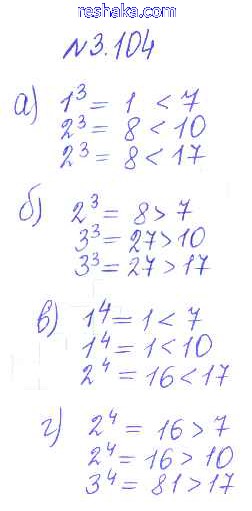 reshaka.com
№3.104
а) 1³ = 1 < 7
2³ = 8 < 10
2³ = 8 < 17
б) 2³ = 8 > 7
3³ = 27 > 10
3³ = 27 > 17
в) 1⁴ = 1 < 7
1⁴ = 1 < 10
2⁴ = 16 < 17
г) 2⁴ = 16 > 7
2⁴ = 16 > 10
3⁴ = 81 > 17